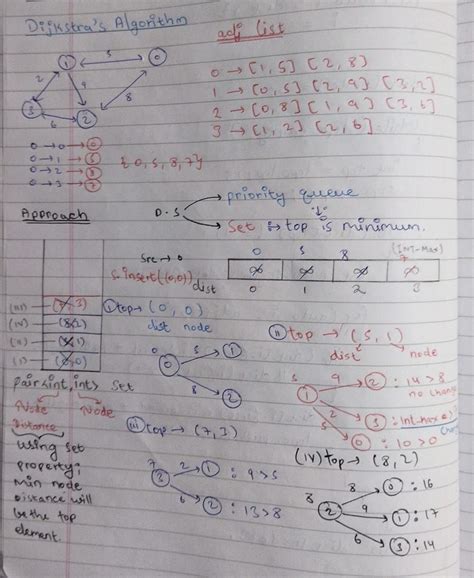 Dijkstra's Algorithm
adj list
1 5 0
2 9 8
3 6 2
0 → [1, 5] [2, 8]
1 → [0, 5] [2, 9] [3, 2]
2 → [0, 8] [1, 9] [3, 6]
3 → [1, 2] [2, 6]
0 → 0 → 0
0 → 1 → 5
0 → 2 → 8
0 → 3 → 7
{0, 5, 8, 7}
D.S → priority queue
→ Set → top is minimum.
Approach
Src → 0
S.insert({0,0})
0 5 8 7 (Int-Max)
dist ∞ ∞ ∞ ∞
0 1 2 3
(III) — (7, 3)
(IV) — (8, 2)
(II) — (5, 1)
(I) — (0, 0)
pair<int, int> Set
Node Distance
Node
using set
property;
min node
distance will
be the top
element.
i) top → (0, 0)
dist node
0 0 → 1
→ 2
ii) top → (5, 1)
dist node
5 1 9 → 2 : 14 > 8
no change
→ 3 : Int-max
→ 0 : 10 > 0
iii) top → (7, 3)
7 3 2 → 1 : 9 > 5
6 → 2 : 13 > 8
(IV) top → (8, 2)
8 2 8 → 0 : 16
9 → 1 : 17
6 → 3 : 14